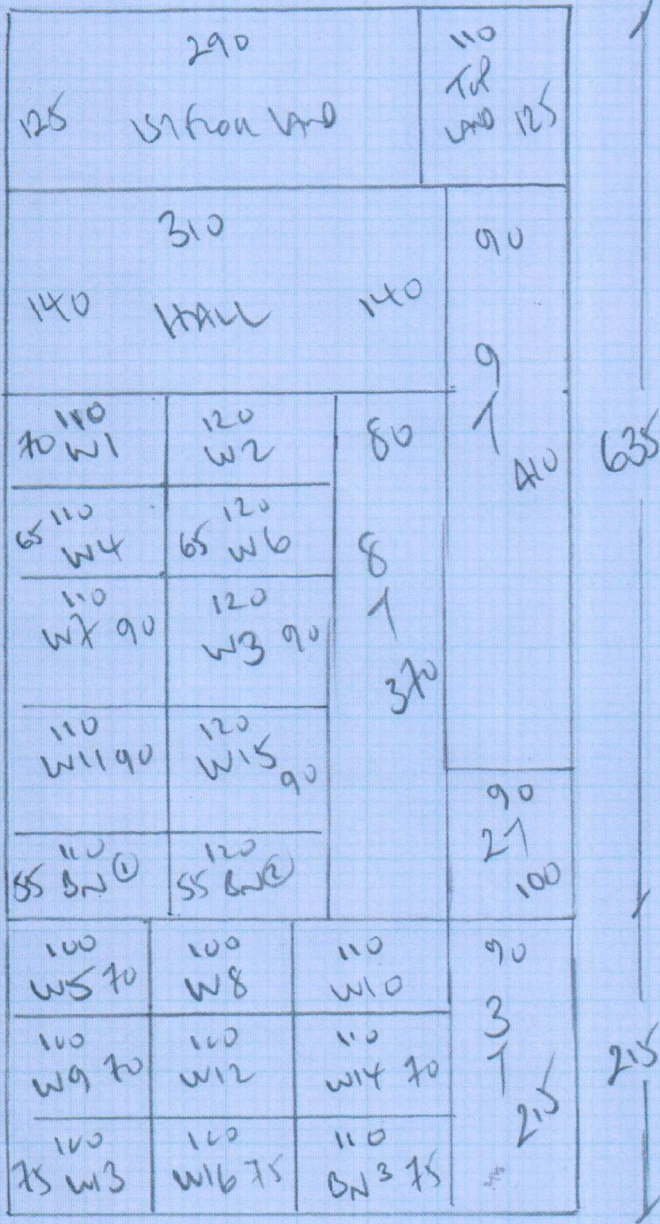 290
125 1ST FLOOR LAND
110
TOP
LAND 125
310
140 HALL 140
90
9
T
410
635
110
70 W1
120
W2
80
8
T
370
65 110
W4
120
65 W6
110
W7 90
120
W3 90
110
W11 90
120
W15
90
110
55 BN ①
120
55 BN ②
90
2T
100
100
W5 70
100
W8
110
W10
90
3
T
215
215
100
W9 70
100
W12
110
W14 70
100
75 W13
100
W16 75
110
BN 3 75